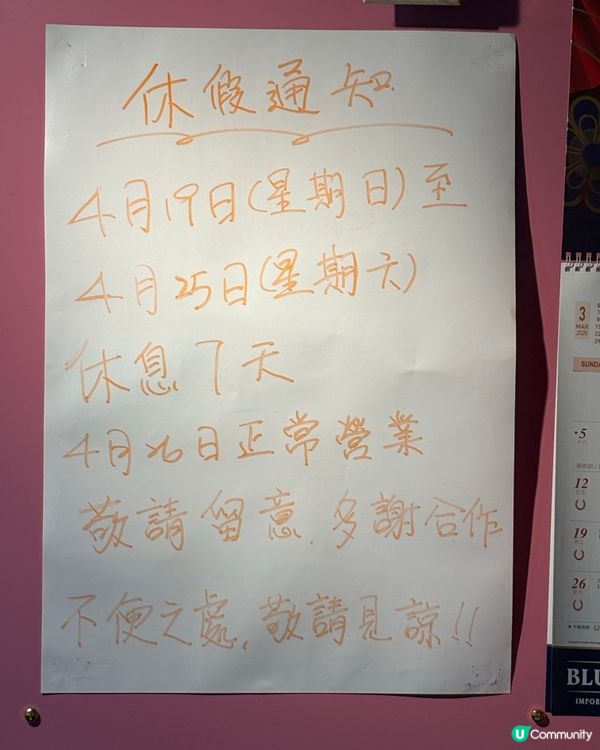 休假通知
4月19日(星期日)至
4月25日(星期六)
休息7天
4月26日正常營業
敬請留意.多謝合作
不便之處,敬請見諒!!
3
MAR
2026
SUNDA
5
12
19
26
BLU
IMPOR
U Community